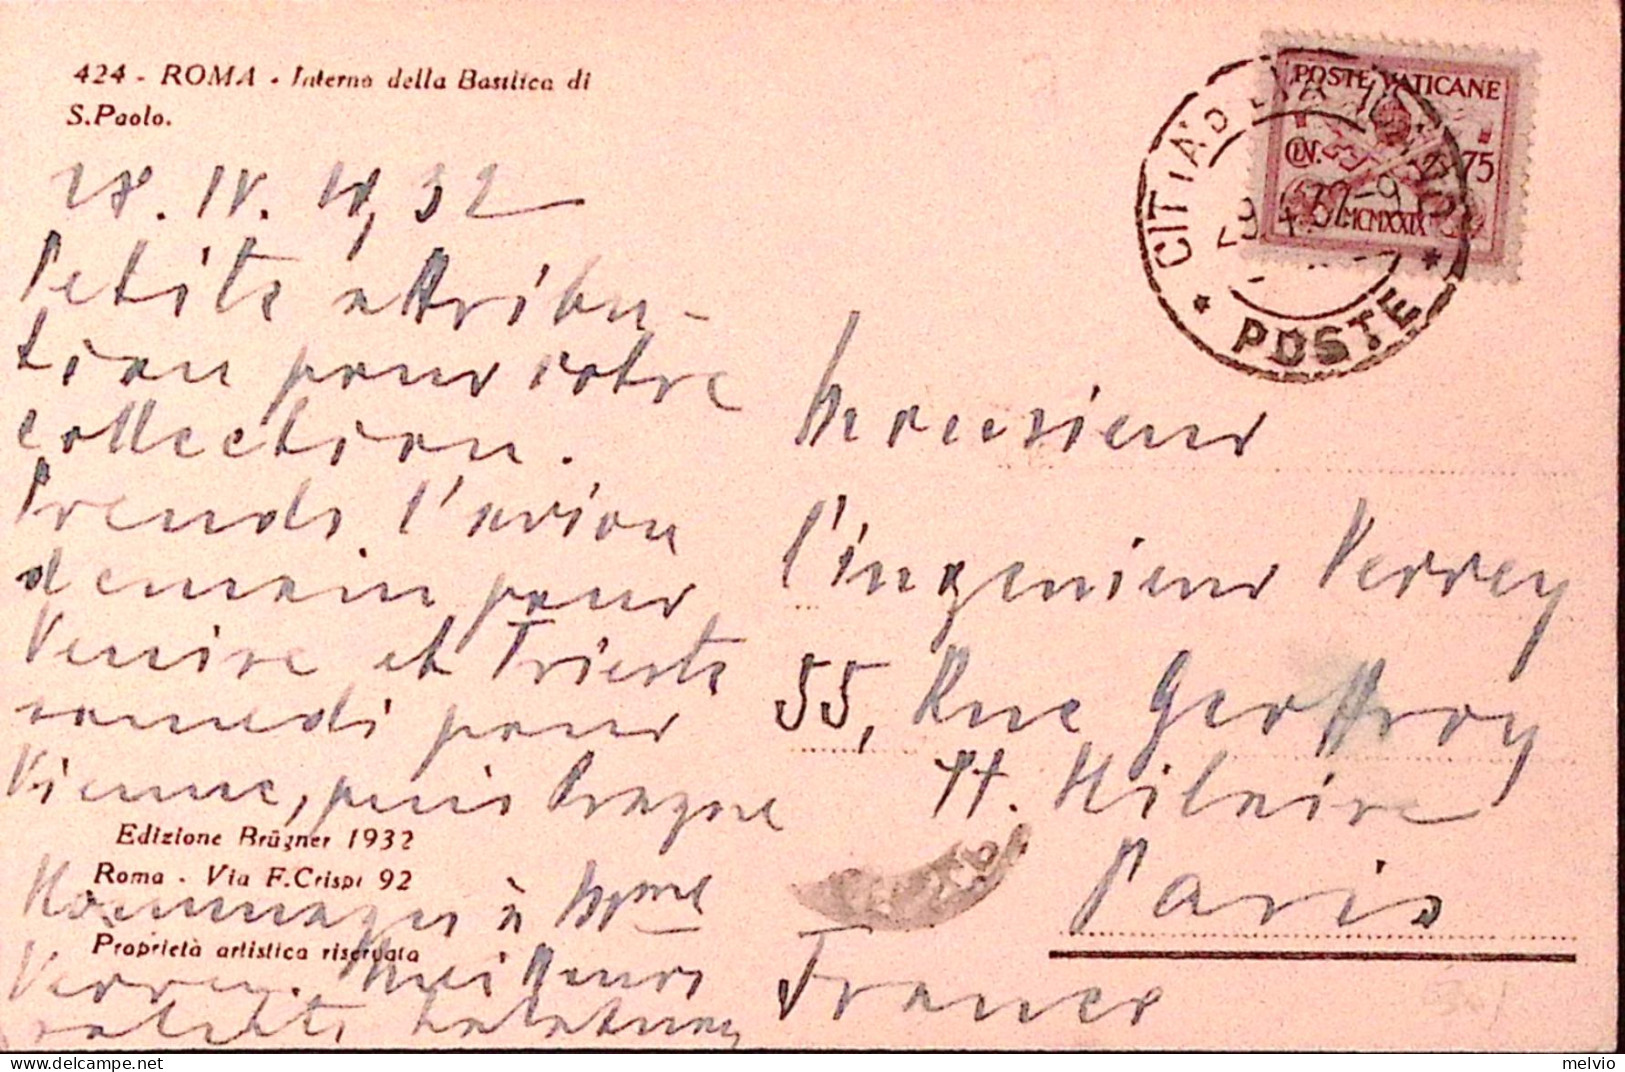 424 - ROMA - Interno della Basilica di
S.Paolo.
28. IV. 32
Petite attribu-
tion pour votre
collection.
Prends l'avion
demain pour
Venise et Trieste
samedi pour
Vienne, puis Prague
Edizione Brügner 1932
Roma - Via F.Crispi 92
Hommages à Mme
Proprietà artistica riservata
Verrey. Meilleurs
saluts
POSTE VATICANE
CEN. 75
MCMXXIX
CITTÀ DEL VATICANO
29.4.32-9
* POSTE *
Monsieur
l'ingenieur Verrey
55, Rue Geoffroy
St. Hilaire
Paris
France
melvio